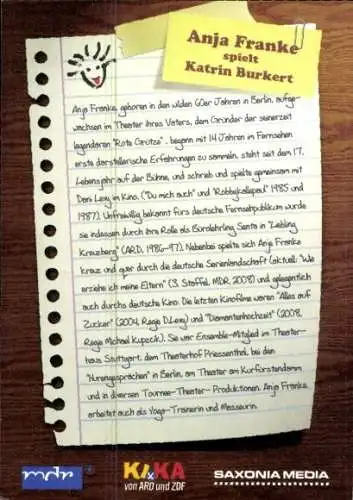 Anja Franke
spielt
Katrin Burkert
Anja Franke, geboren in den wilden 60er Jahren in Berlin, aufge-
wachsen im Theater ihres Vaters, dem Gründer der seinerzeit
legendären "Rote Grütze" - begann mit 14 Jahren im Fernsehen
erste darstellerische Erfahrungen zu sammeln, steht seit dem 17.
Lebensjahr auf der Bühne, und schrieb und spielte gemeinsam mit
Dani Levy im Kino. ("Du mich auch" und "Robbykallepaul" 1985 und
1987). Unfreiwillig bekannt fürs deutsche Fernsehpublikum wurde
sie indessen durch ihre Rolle als Bürolehrling Senta in "Liebling
Kreuzberg" (ARD, 1986-97). Nebenbei spielte sich Anja Franke
kreuz und quer durch die deutsche Serienlandschaft (aktuell: "Wie
erziehe ich meine Eltern" (3. Staffel, MDR 2008) und gelegentlich
auch durchs deutsche Kino. Die letzten Kinofilme waren "Alles auf
Zucker" (2004, Regie D.Levy) und "Diamantenhochzeit" (2008,
Regie Michael Kupczik). Sie war Ensemble-Mitglied im Theater-
haus Stuttgart, dem Theaterhof Priessenthal, bei den
in Berlin, am Theater am Kurfürstendamm
und in diversen Tournee-Theater- Produktionen. Anja Franke
arbeitet auch als Yoga-Trainerin und Masseurin.
mdr
KI.KA
von ARD und ZDF
SAXONIA MEDIA